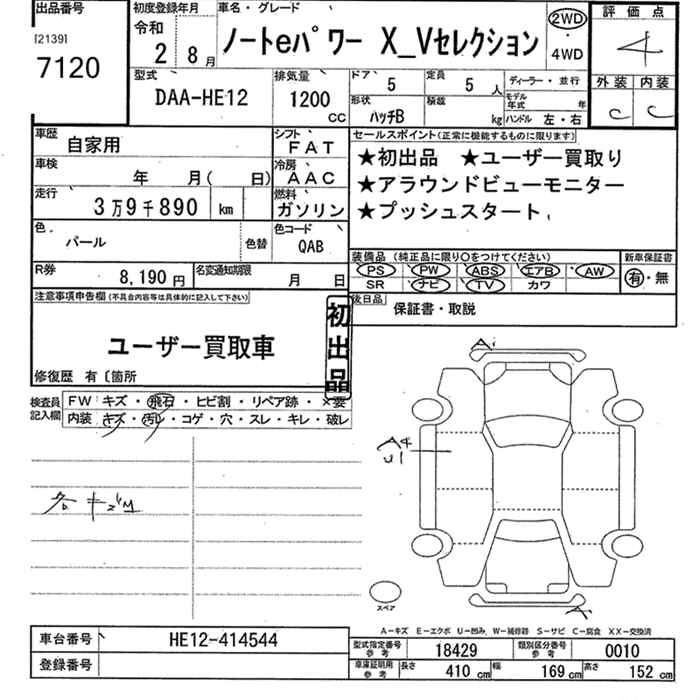 出品番号
[2139]
7120
初度登録年月
令和 2 8月
車名・グレード
ノートeパワー X_Vセレクション
2WD ・ 4WD
評価点
4
外装 内装
C C
型式
DAA-HE12
排気量
1200 CC
ドア 5
定員 5人
形状 ハッチB
積載 kg
ディーラー・並行
モデル年式 年
ハンドル 左・右
車歴 自家用
シフト FAT
車検 年 月( 日)
冷房 AAC
走行 3万9千890 km
燃料 ガソリン
色 パール
色替
色コード QAB
R券 8,190円
名変通知期限 月 日
セールスポイント(正常に機能するものに限ります)
★初出品 ★ユーザー買取り
★アラウンドビューモニター
★プッシュスタート
装備品 (純正品に限り○をつけてください)
PS PW ABS エアB AW
SR ナビ TV カワ
新車保証書
有・無
後日品 保証書・取説
注意事項申告欄(不具合内容等は具体的に記入して下さい)
ユーザー買取車
初出品
修復歴 有〔箇所
検査員記入欄
FW キズ・飛石・ヒビ割・リペア跡・×要
内装 キズ・汚レ・コゲ・穴・スレ・キレ・破レ
A
A4
U1
スペア
A
A-キズ E-エクボ U-凹み W-補修跡 S-サビ C-腐食 XX-交換済
車台番号 HE12-414544
登録番号
型式指定番号参考 18429
類別区分番号参考 0010
車庫証明用参考 長さ 410 cm 幅 169 cm 高さ 152 cm